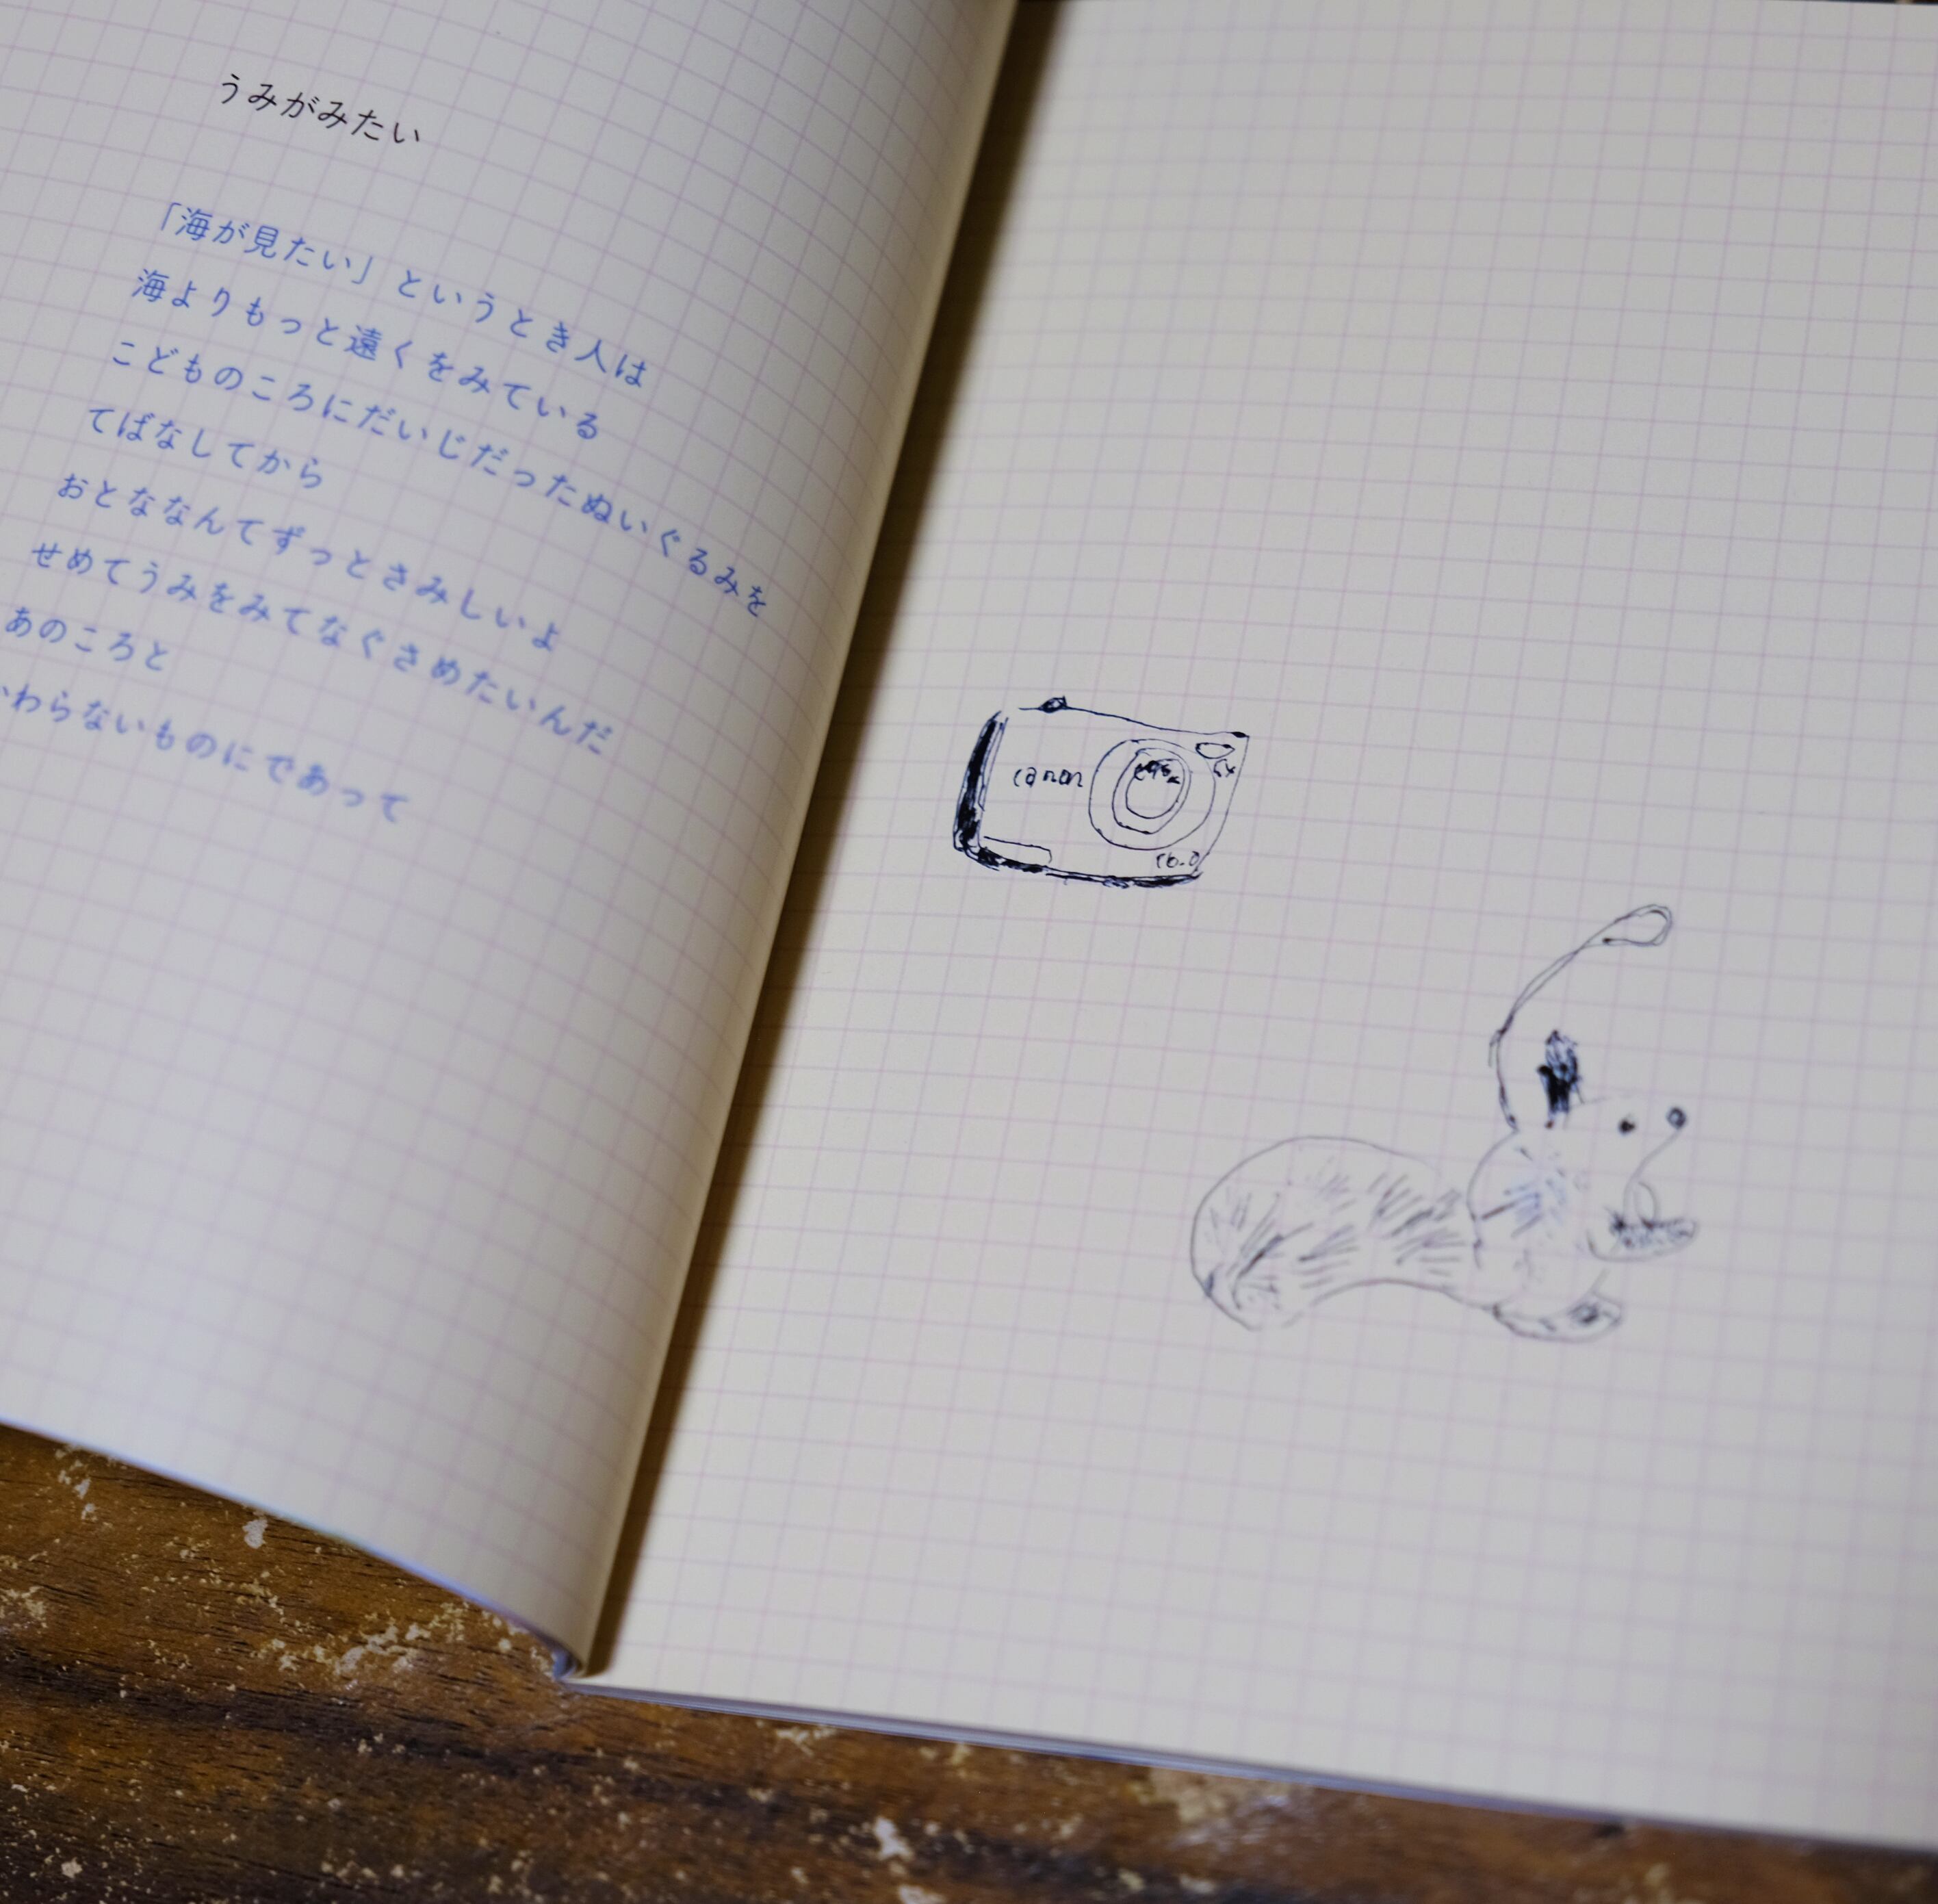 うみがみたい
「海が見たい」というとき人は
海よりもっと遠くをみている
こどものころにだいじだったぬいぐるみを
てばなしてから
おとななんてずっとさみしいよ
せめてうみをみてなぐさめたいんだ
あのころと
かわらないものにであって
canon